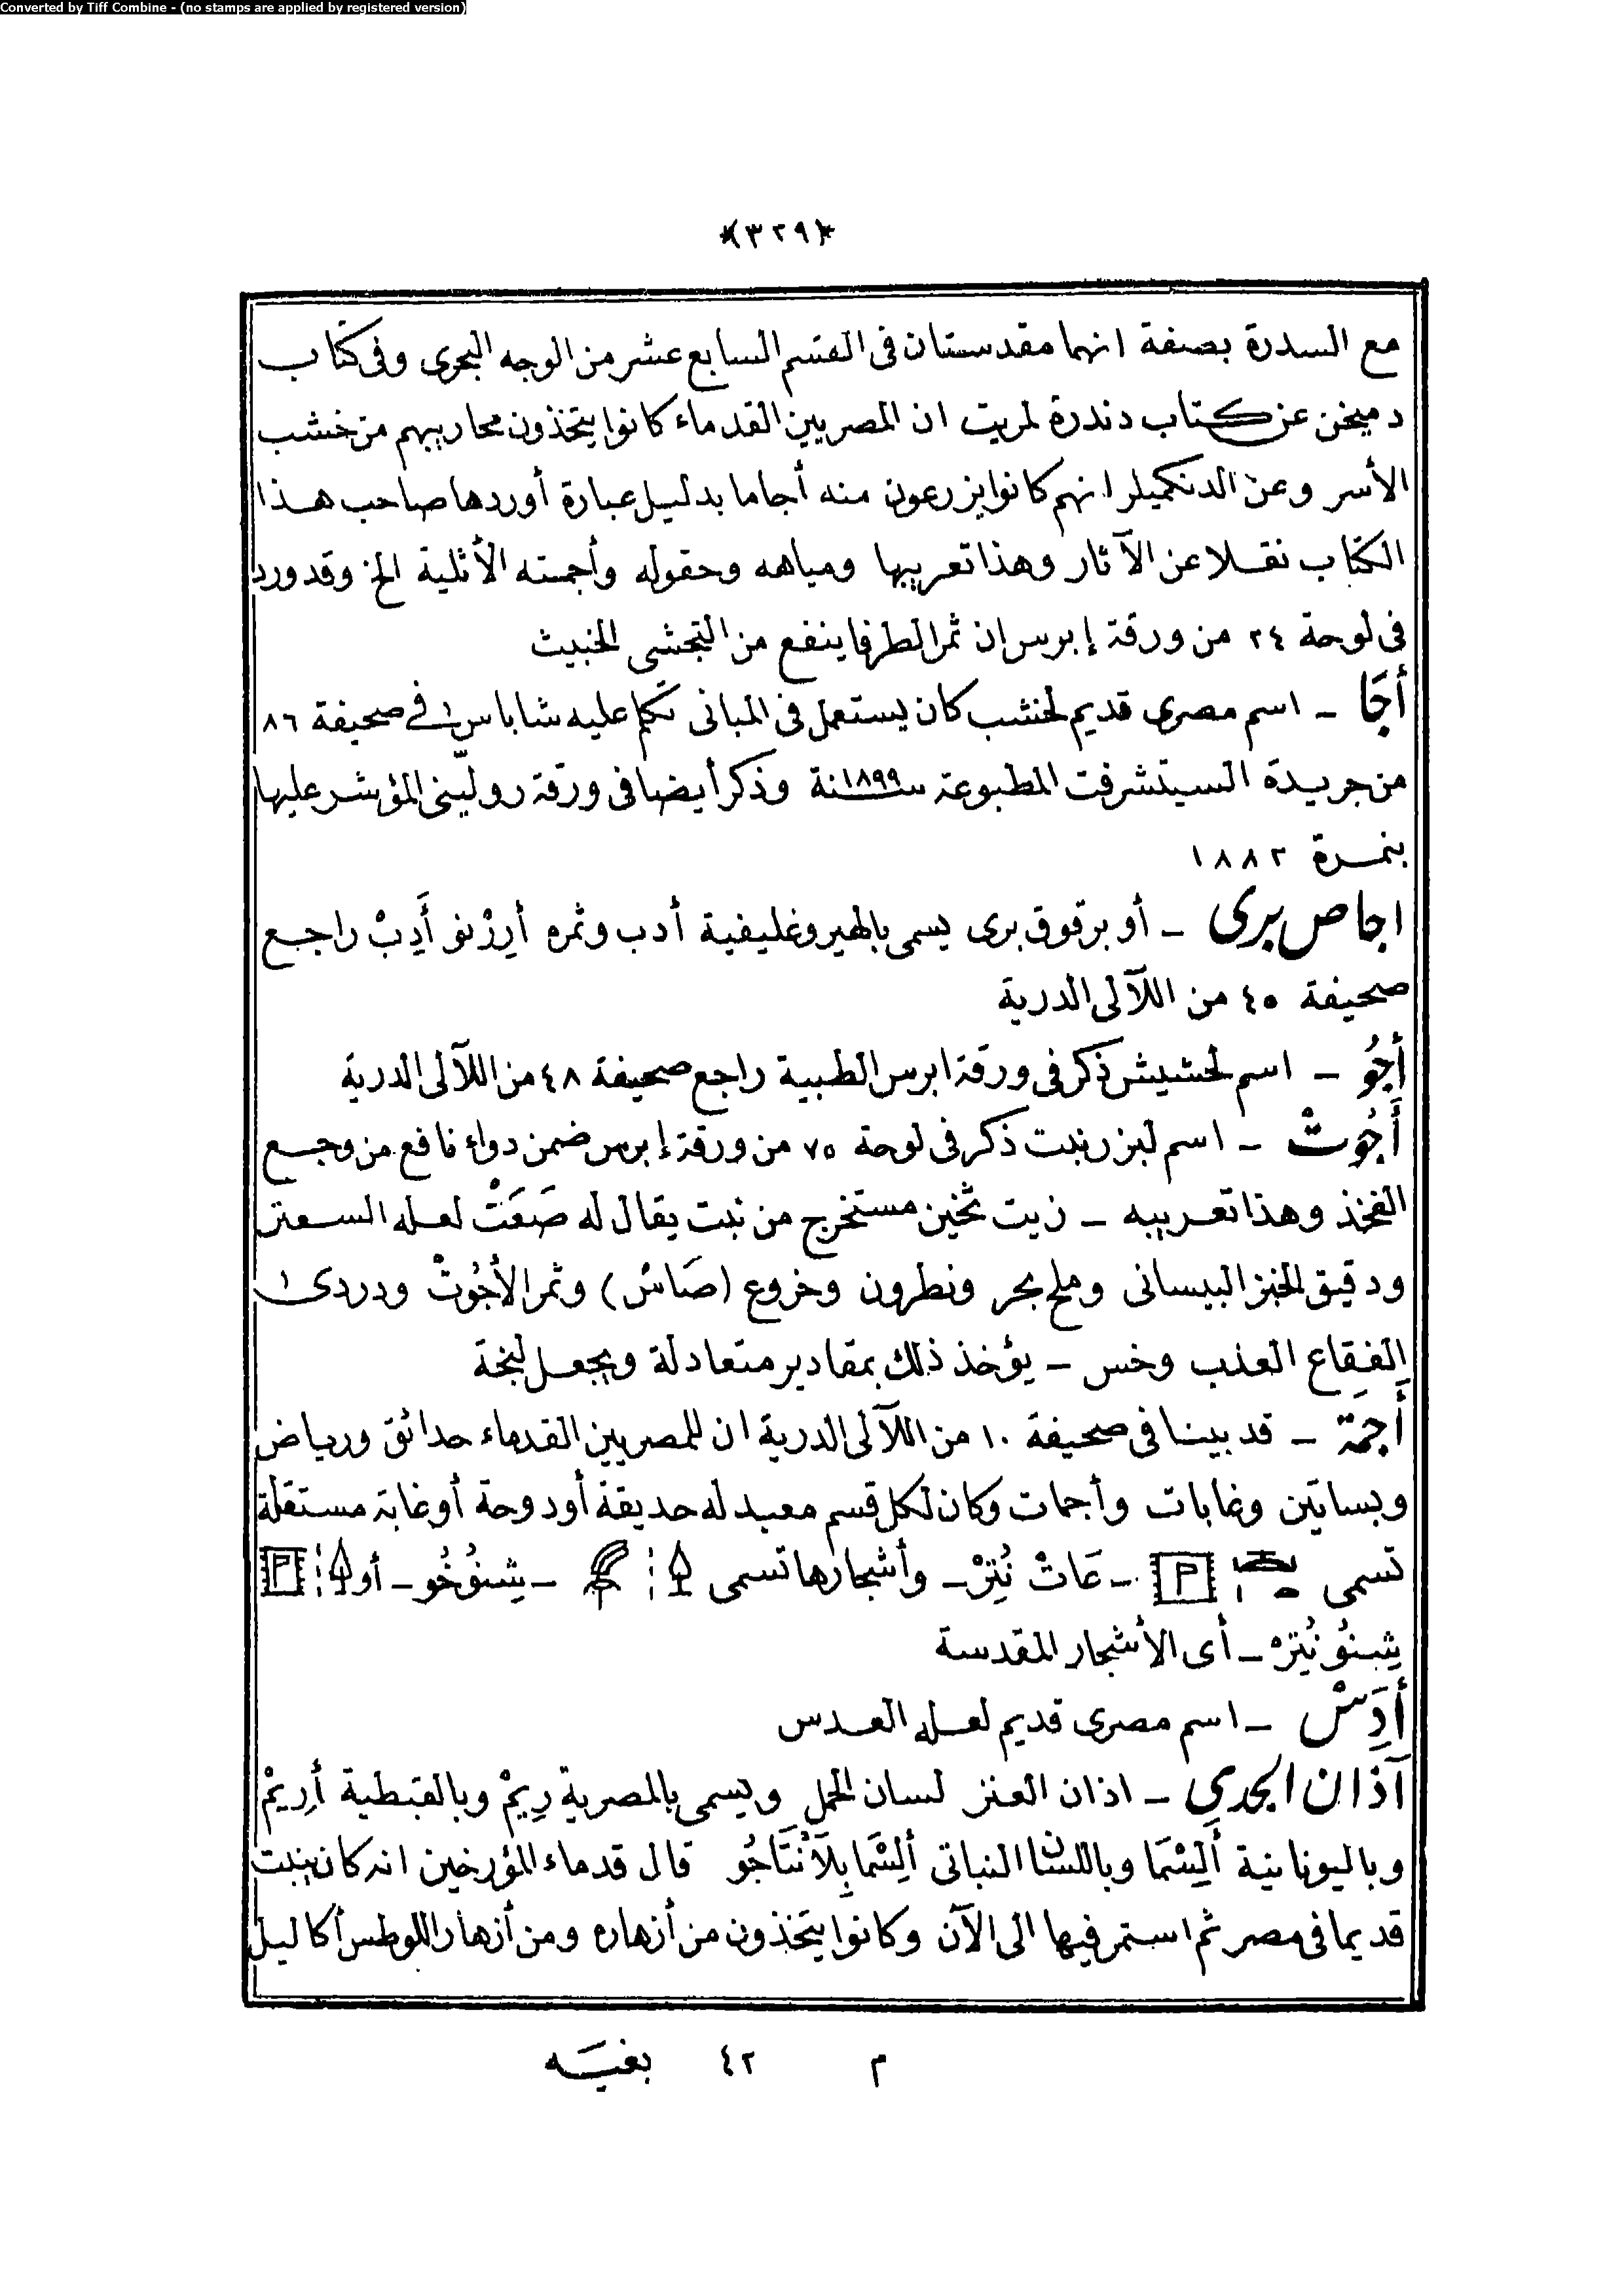 Converted by Tiff Combine - (no stamps are applied by registered version)
*(٣٢٩)*
مع السدرة بصفة انهما مقدستان فى القسم السابع عشر من الوجه البحرى وفى كتاب
دميخن عن كتاب دندرة لمريت ان المصريين القدماء كانوا يتخذون محاريبهم من خشب
الأسر وعن الدنكميلر انهم كانوا يزرعون منه أجاما بدليل عبارة أوردها صاحب هذا
الكتاب نقلا عن الآثار وهذا تعريبها ومياهه وحقوله وأجمته الأثلية الخ وقد ورد
فى لوحة ٢٤ من ورقة إبرس ان ثمر الطرفا ينفع من التجشى الخبيث
أَجَا - اسم مصرى قديم لخشب كان يستعمل فى المبانى تكلم عليه شاباس فى صحيفة ٨٦
من جريدة السيتشرفت المطبوعة سنة ١٨٩٩ وذكر أيضا فى ورقة رولينى المؤشر عليها
بنمرة ١٨٨٢
اجاص برى - أو برقوق برى يسمى بالهيروغليفية أدب وثمره أَرِزْنو أَدِبْ راجع
صحيفة ٤٥ من اللآلى الدرية
أَجُو - اسم لحشيش ذكر فى ورقة ابرس الطبية راجع صحيفة ٤٨ من اللآلى الدرية
أَجُوتْ - اسم لبزر نبت ذكر فى لوحة ٧٥ من ورقة إبرس ضمن دواء نافع من وجع
الفخذ وهذا تعريبه - زيت ثخين مستخرج من نبت يقال له صَعَتْ لعله السعتر
ودقيق الخبز البيسانى وملح بحر ونطرون وخروع (صَاسْ) وثمر الأجُوتْ ودردى
الفقاع العذب وخس - يؤخذ ذلك بمقادير متعادلة ويجعل لبخة
أَجَمَة - قد بينا فى صحيفة ١٠ من اللآلى الدرية ان للمصريين القدماء حدائق ورياض
وبساتين وغابات وأجمات وكان لكل قسم معبد له حديقة أو دوحة أو غابة مستقلة
تسمى - عَاتْ نُتِرْ - وأشجارها تسمى - شِنُوخُو - أو
شِنُو نُتِرْ - أى الأشجار المقدسة
أَدَِسْ - اسم مصرى قديم لعله العدس
آذان الجدى - اذان العنز لسان الحمل ويسمى بالمصرية رِيمْ وبالقبطية أَرِيمْ
وباليونانية أَلِسْمَا وباللسان النباتى أَلِسْمَا بِلَانْتَاجُو قال قدماء المؤرخين انه كان ينبت
قديما فى مصر ثم استمر فيها الى الآن وكانوا يتخذون من أزهاره ومن أزهار اللوطس أكاليل
م ٤٢ بغيه